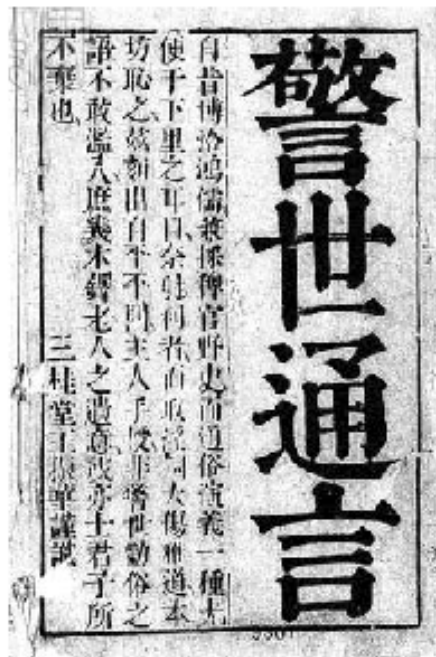 警世通言
自昔博洽鴻儒兼採稗官野史而通俗演義一種尤
便于下里之耳目奈射利者而取淫詞大傷雅道本
坊恥之茲刻出自平平閣主人手授非警世勸俗之
語不敢濫入庶幾木鐸老人之遺意或亦士君子所
不棄也 三桂堂王振華謹識